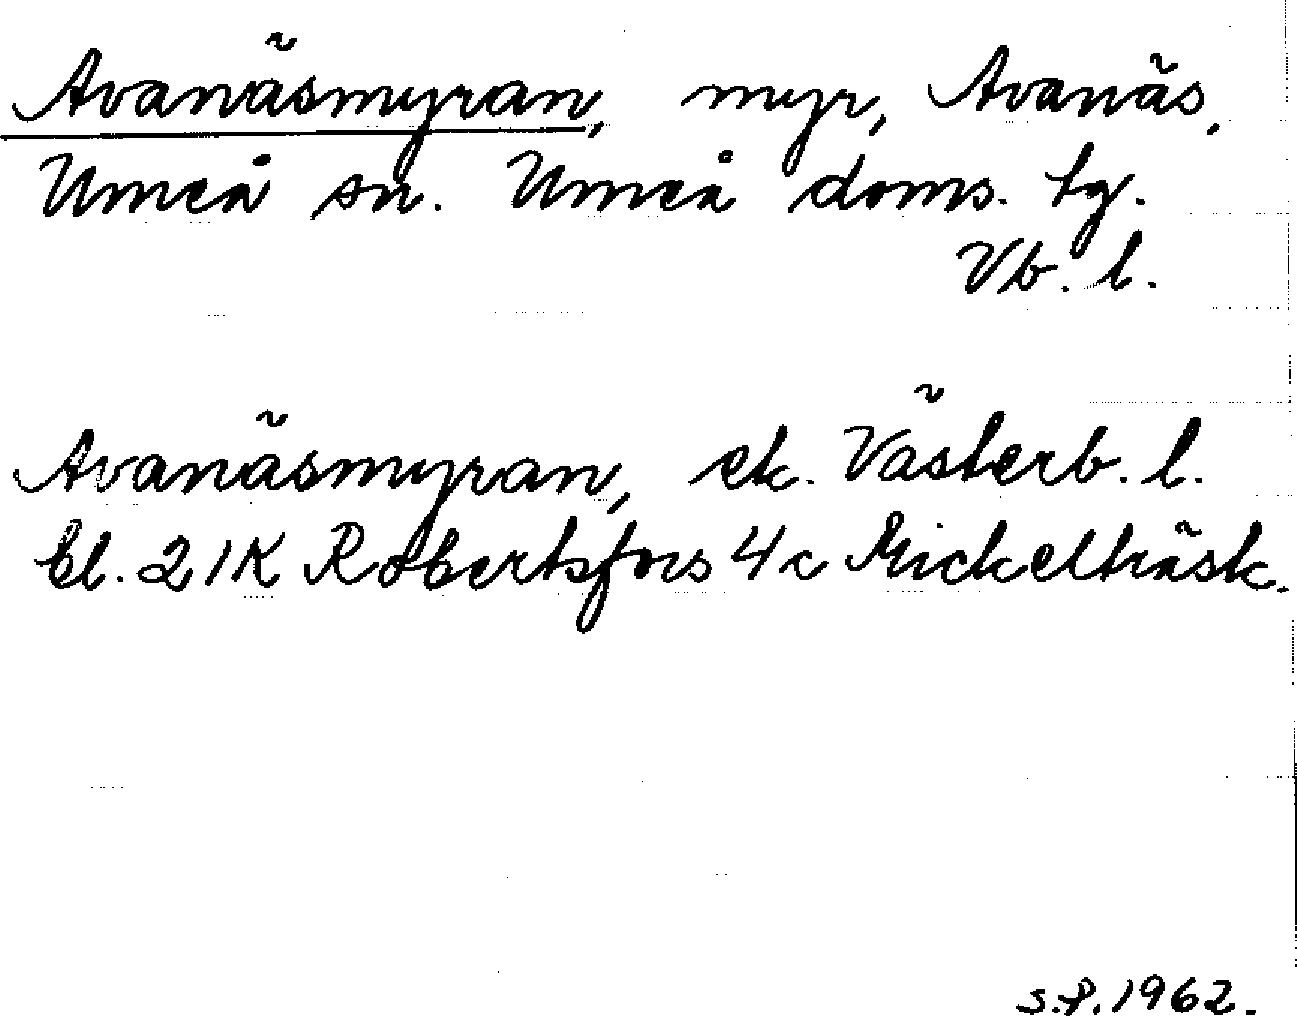 Avanäsmyran, myr, Avanäs,
Umeå sn. Umeå doms. tg.
Vb. l.
Avanäsmyran, ek. Västerb. l.
bl. 21K Robertsfors 4c Mickelträsk.
S.P. 1962.